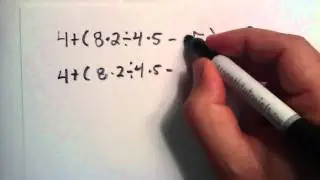 4+(8·2÷4·5-
4+(8·2÷4·5-